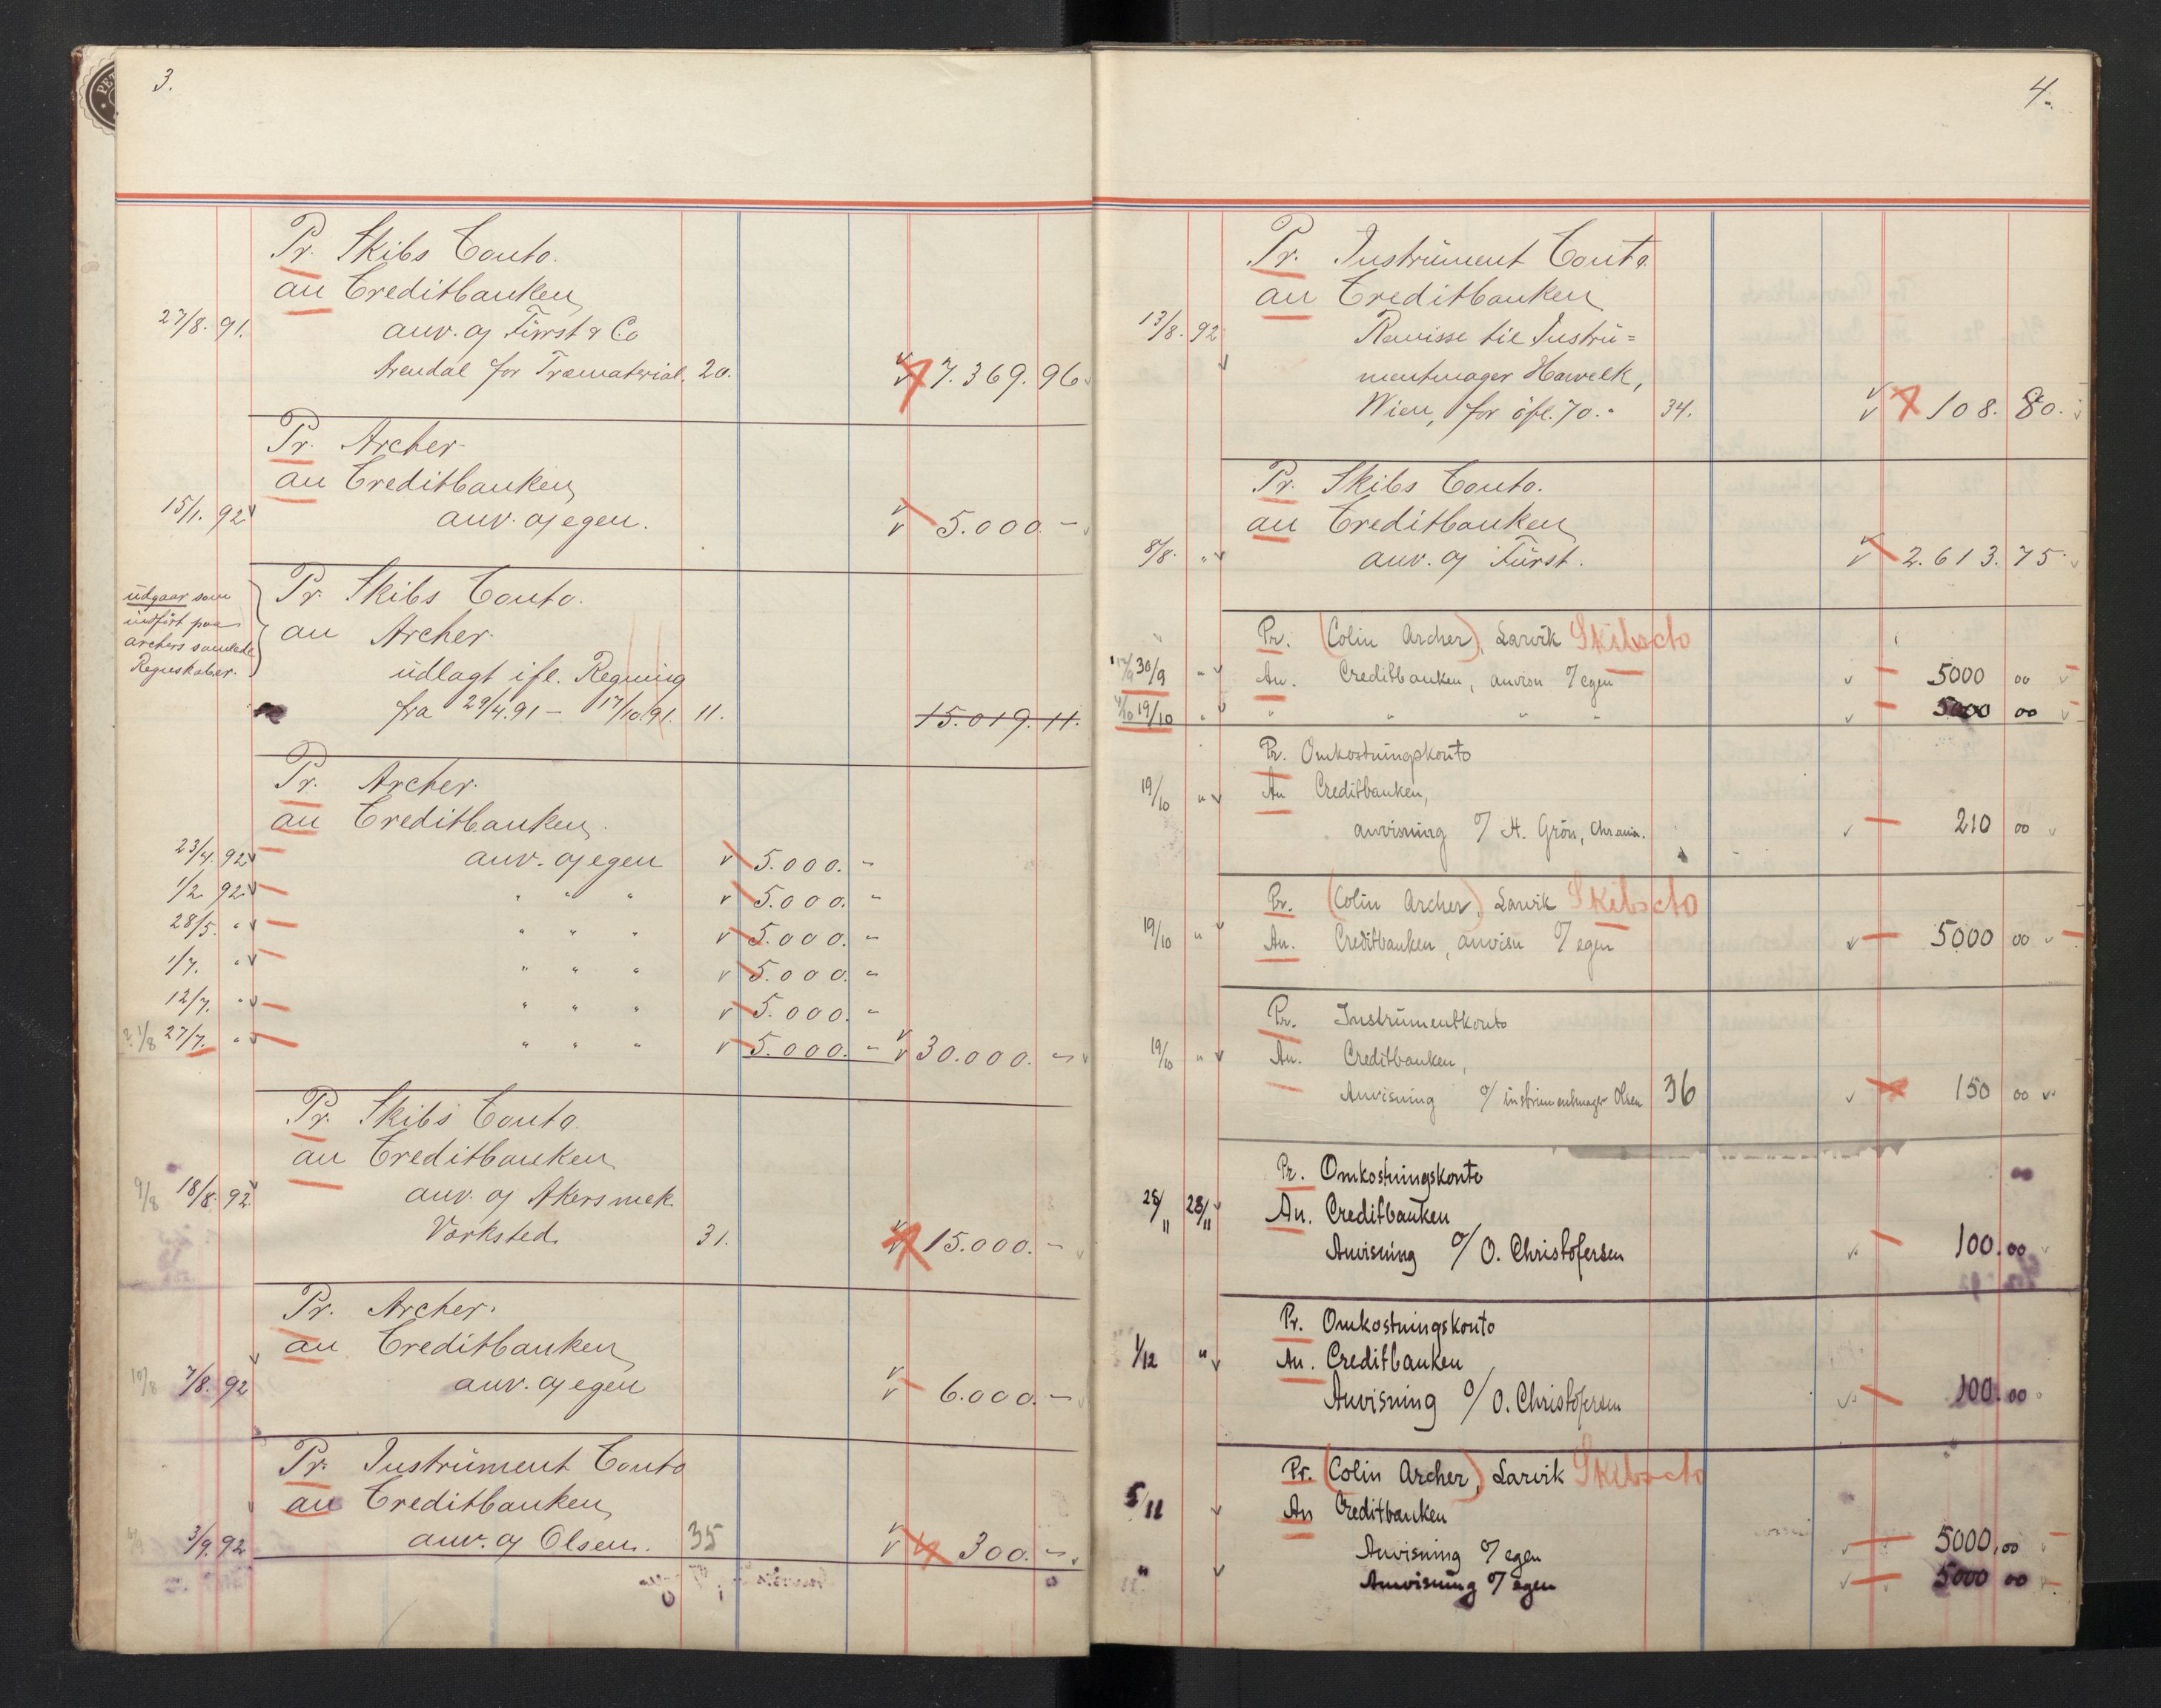 3.
Pr. Skibs Conto.
an Creditbanken
27/8. 91. anv. af Fürst & Co
Arendal for Træmaterial. 20. 7.369.96
Pr. Archer
an Creditbanken
15/1. 92 anv. af egen. 5.000.-
udgaar som
indført paa
archers samlede
Regnskaber.
Pr. Skibs Conto.
an Archer.
udlagt ifl. Regning
fra 29/4.91 - 17/10.91. 11. 15.019.11.
Pr. Archer.
an Creditbanken.
23/4. 92 anv. af egen 5.000.-
1/2 92 " " " 5.000.-
28/5. " " " " 5.000.-
1/7. " " " " 5.000.-
12/7. " " " " 5.000.-
1/8 27/7. " " " " 5.000.- 30.000.-
Pr. Skibs Conto.
an Creditbanken
9/8 18/8. 92. anv. af Akers mek.
Værksted. 31. 15.000.-
Pr. Archer.
an Creditbanken
10/8 7/8. 92 anv. af egen 6.000.-
Pr. Instrument Conto
an Creditbanken
3/9. 92 anv. af Olsen. 35 300.-
4.
Pr. Instrument Conto.
an Creditbanken
13/8. 92 Remisse til Instru=
mentmager Hawelk,
Wien, for öfl. 70.- 34. 108. 80.
Pr. Skibs Conto.
an Creditbanken
8/8. " anv. af Fürst. 2.613.75
Pr. (Colin Archer), Larvik Skibscto
30/9 " An. Creditbanken, anvisn o/ egen 5000 00
19/10 " " " " " 5000 00
Pr. Omkostningskonto
19/10 " An Creditbanken,
anvisning o/ H. Grön, Chrania. 210 00
Pr. (Colin Archer), Larvik Skibscto
19/10 " An. Creditbanken, anvisn o/ egen 5000 00
Pr. Instrumentkonto
19/10 " An. Creditbanken,
Anvisning o/ instrumentmager Olsen 36 150 00
Pr. Omkostningskonto
28/11 28/11 An. Creditbanken
Anvisning o/ O. Christofersen 100.00
Pr. Omkostningskonto
1/12 " An. Creditbanken
Anvisning o/ O. Christofersen 100.00
Pr. (Colin Archer), Larvik Skibscto
5/11 An Creditbanken
Anvisning o/ egen 5000,00
" Anvisning o/ egen 5000 00